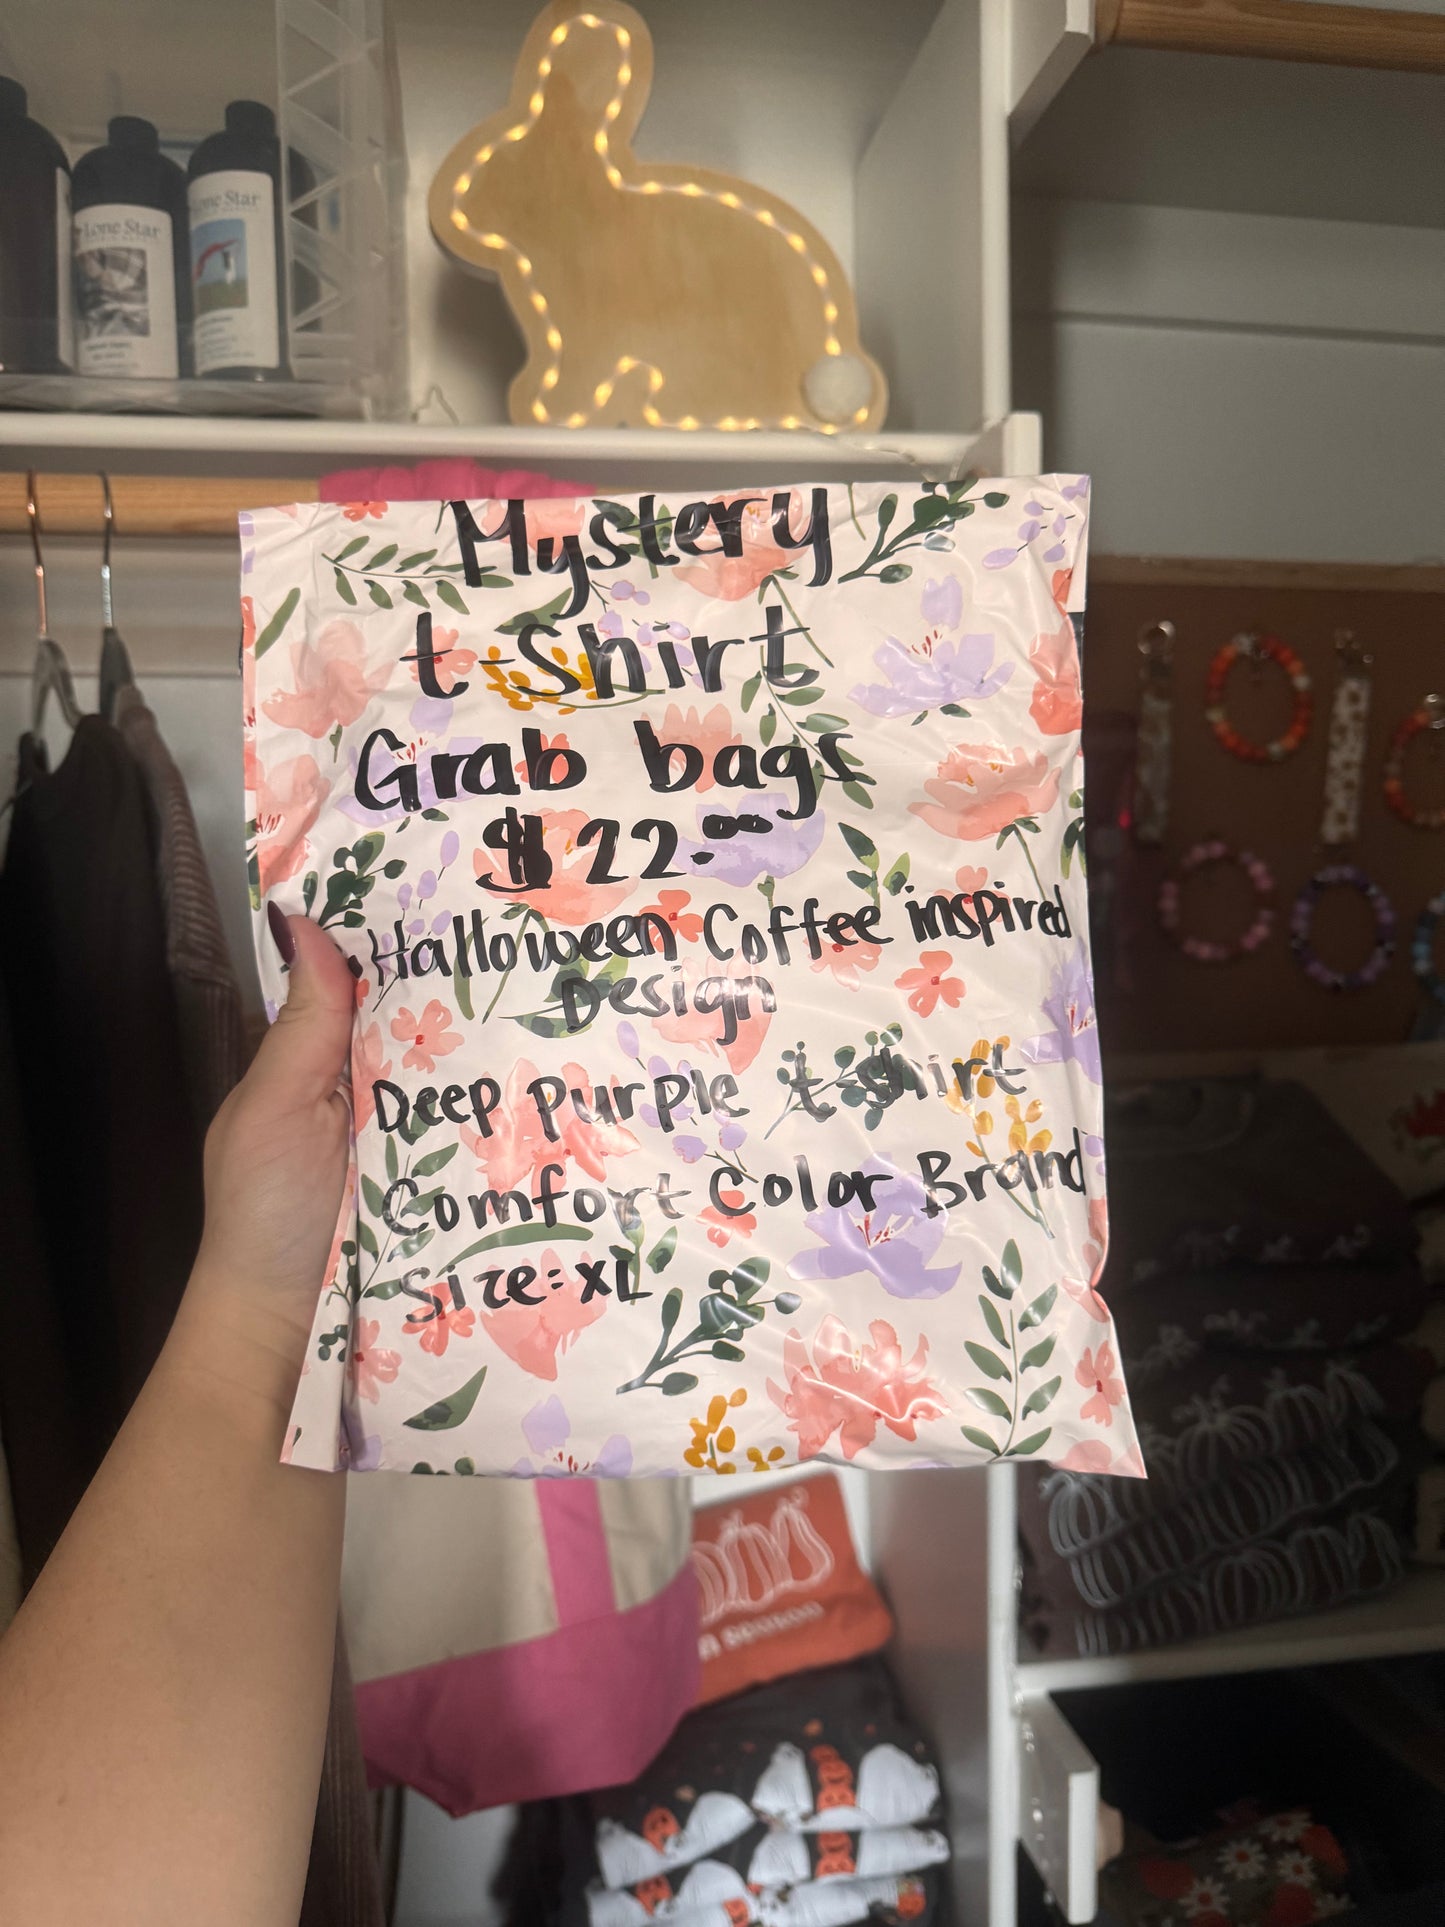 Lone Star
Lone Star
Mystery
t-shirt
Grab bags
$22.00
Halloween Coffee inspired
Design
Deep purple t-shirt
Comfort Color Brand
Size: XL